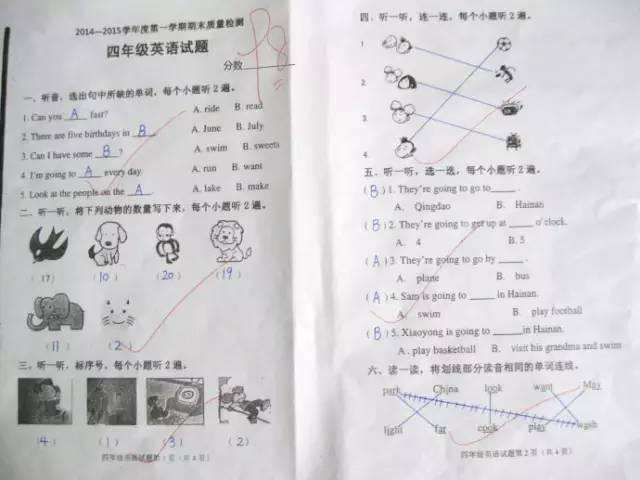 2014—2015学年度第一学期期末质量检测
四年级英语试题
分数 98
一、听音，选出句中所缺的单词，每个小题听2遍。
1. Can you A fast? A. ride B. read
2. There are five birthdays in B. A. June B. July
3. Can I have some B? A. swim B. sweets
4. I'm going to A every day. A. run B. want
5. Look at the people on the A. A. lake B. make
二、听一听，将下列动物的数量写下来，每个小题听2遍。
(17) (10) (20) (19)
(11) (2)
三、听一听，标序号，每个小题听2遍。
(4) (1) (3) (2)
四年级英语试题第1页（共4页）
四、听一听，连一连，每个小题听2遍。
1.
2.
3.
4.
五、听一听，选一选，每个小题听2遍。
(B) 1. They're going to go to____.
A. Qingdao B. Hainan
(B) 2. They're going to get up at ____ o'clock.
A. 4 B. 5
(A) 3. They're going to go by ____.
A. plane B. bus
(A) 4. Sam is going to ____ in Hainan.
A. swim B. play football
(B) 5. Xiaoyong is going to ____in Hainan.
A. play basketball B. visit his grandma and swim
六、读一读，将划线部分读音相同的单词连线。
park China look want May
light far cook play wash
四年级英语试题第2页（共4页）